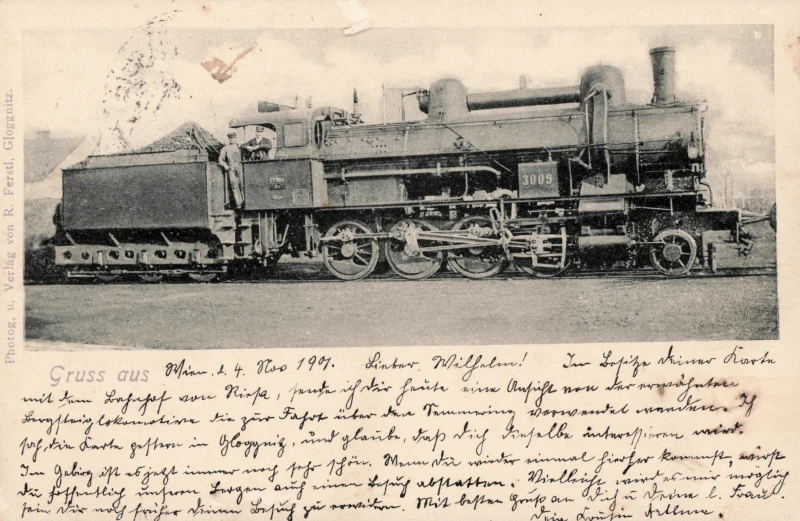 Photog. u. Verlag von R. Ferstl, Gloggnitz.
3009
Gruss aus Wien, d. 4. Nov 1901. Lieber Wilhelm! Im Besitze Deiner Karte
mit dem Bahnhof von Riesa, sende ich Dir heute eine Ansicht von der erwähnten
Bergsteiglokomotive die zur Fahrt über den Semmering verwendet werden. Ich
sah, die Karte gestern in Gloggnitz, und glaube, daß Dich dieselbe interessieren wird.
Im Gebirg ist es jetzt immer noch sehr schön. Wenn Du wieder einmal hierher kommst, wirst
Du hoffentlich unseren Bergen auch einen Besuch abstatten. Vielleicht wird es mir möglich
sein Dir noch früher Deinen Besuch zu erwidern. Mit besten Gruß an Dich u Deine l. Frau.
Dein Cousin